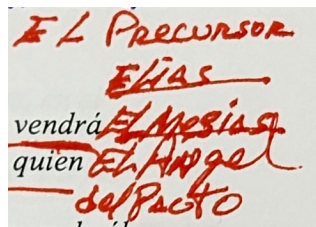 EL PRECURSOR
ELIAS
vendrá EL MESIAS
quien EL Angel
del Pacto